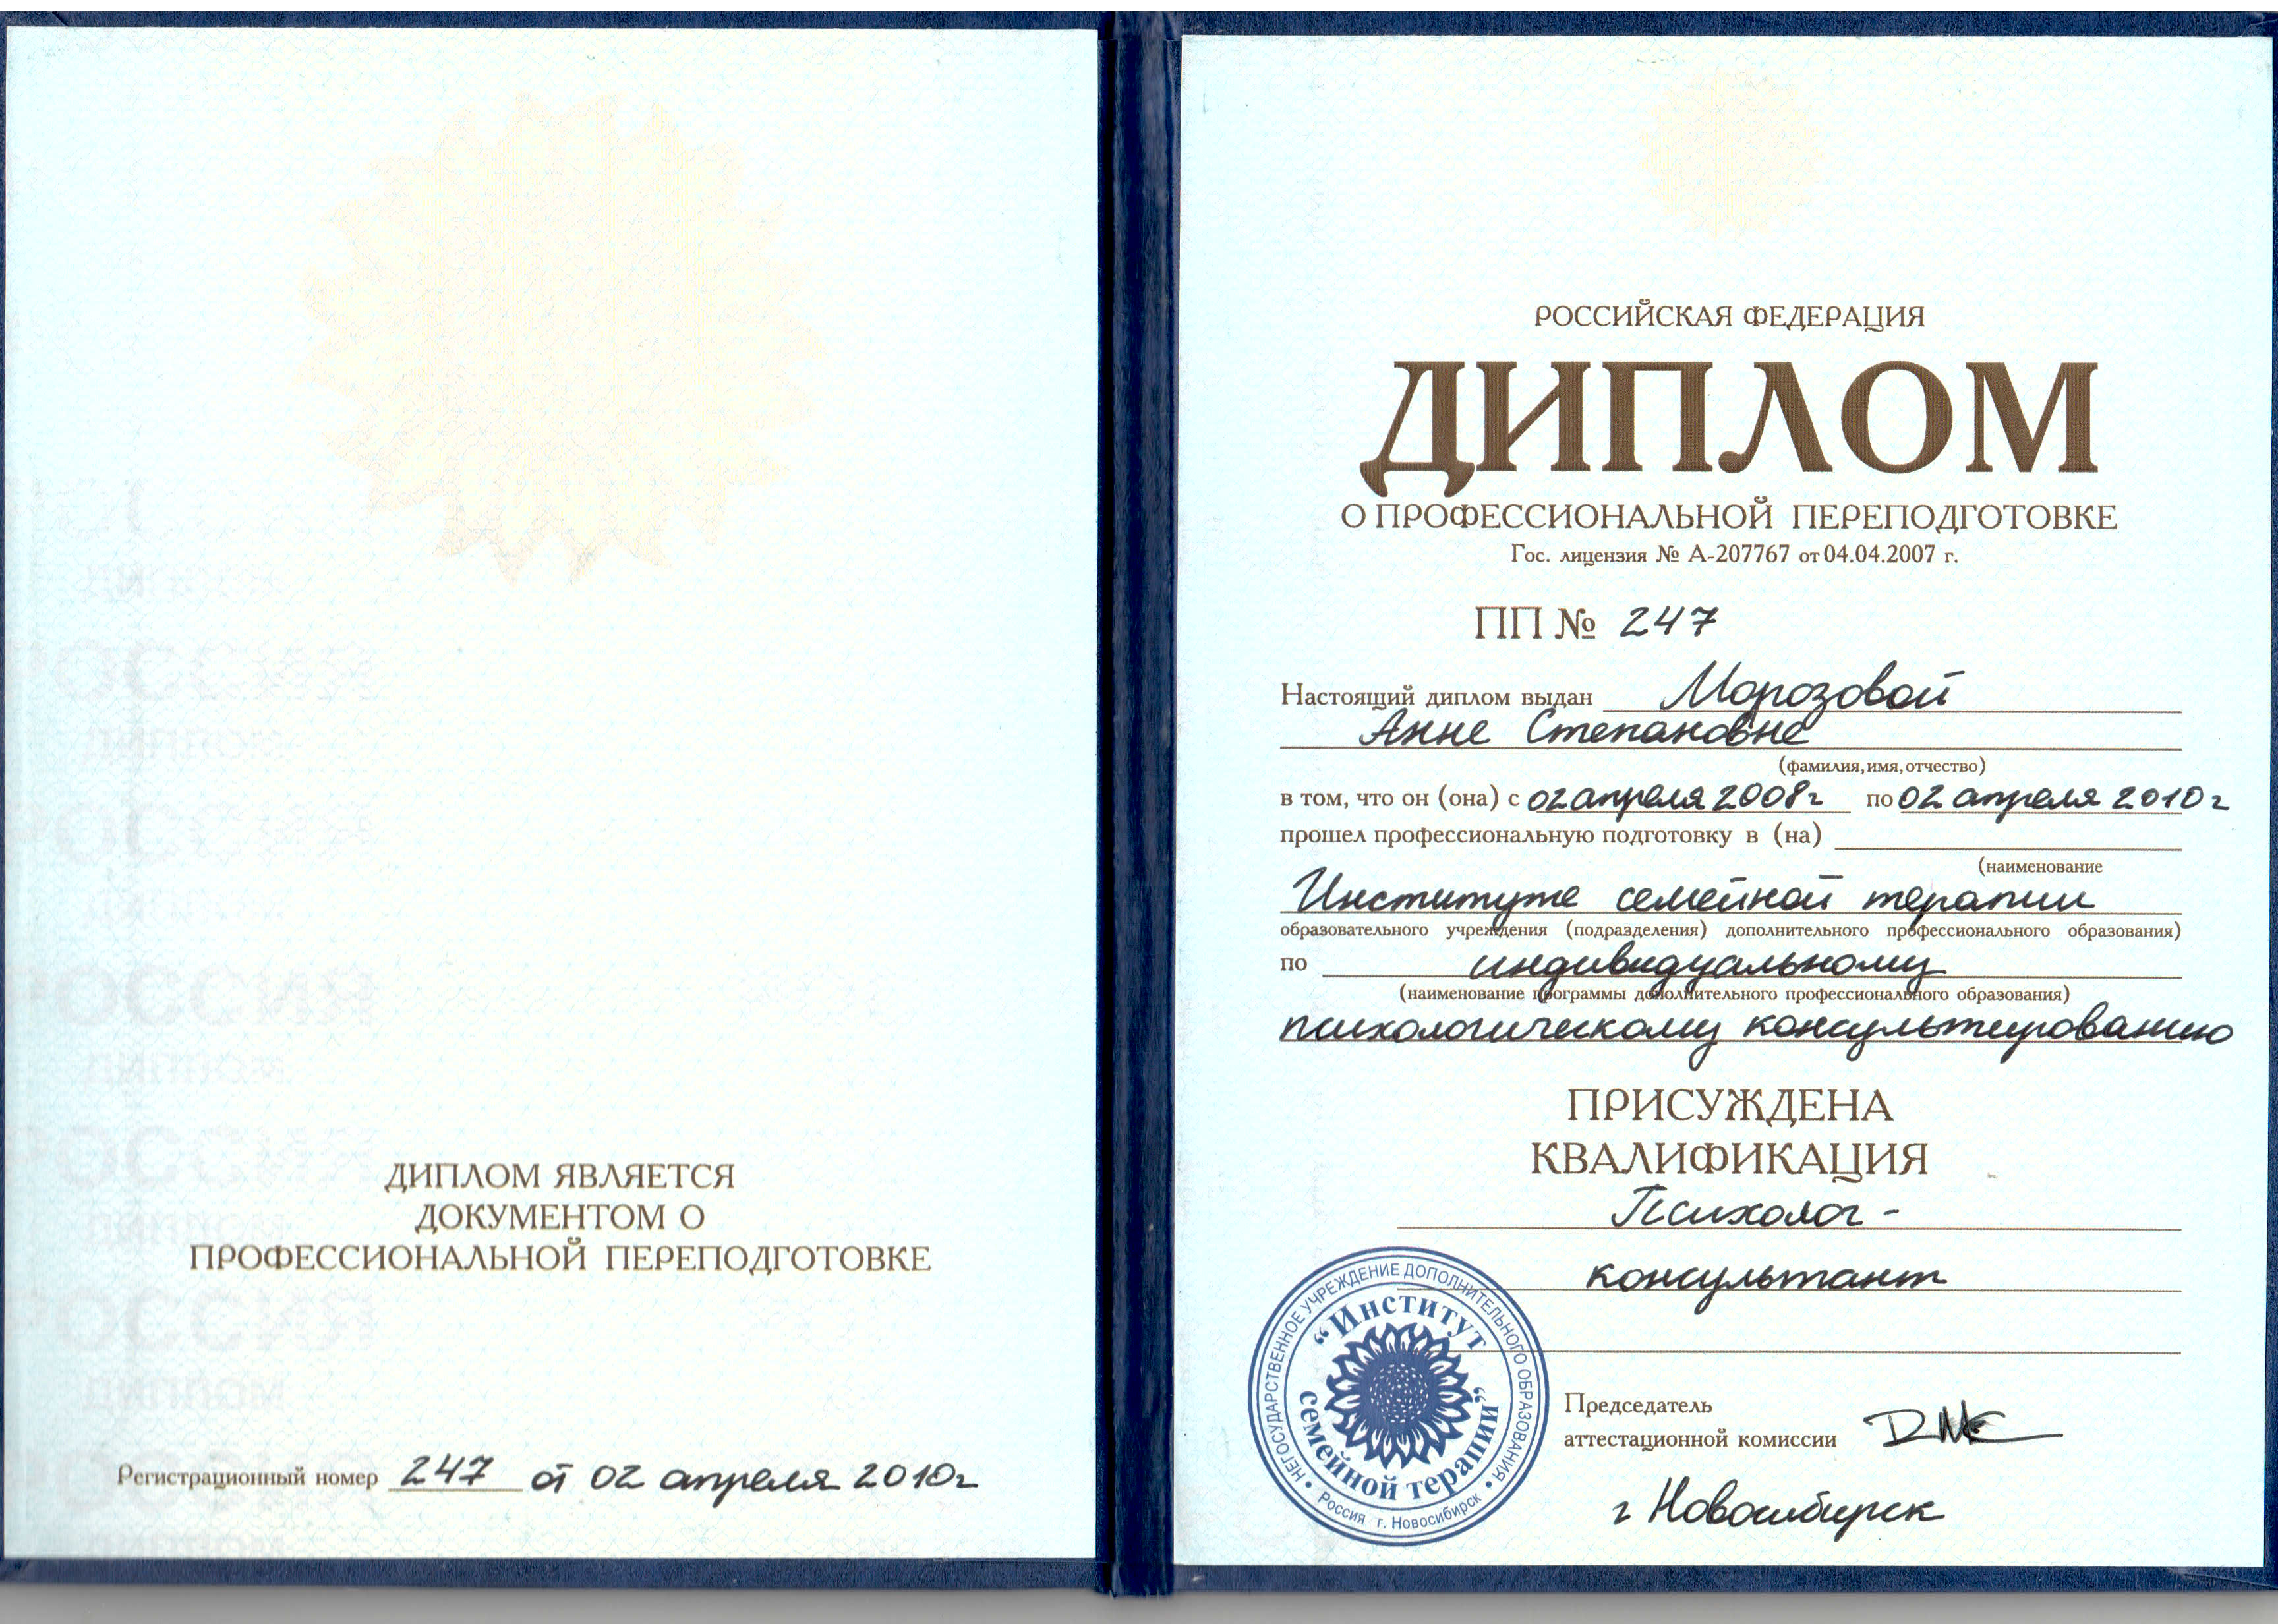 ДИПЛОМ ЯВЛЯЕТСЯ
ДОКУМЕНТОМ О
ПРОФЕССИОНАЛЬНОЙ ПЕРЕПОДГОТОВКЕ
Регистрационный номер 247 от 02 апреля 2010г
РОССИЙСКАЯ ФЕДЕРАЦИЯ
ДИПЛОМ
О ПРОФЕССИОНАЛЬНОЙ ПЕРЕПОДГОТОВКЕ
Гос. лицензия № А-207767 от 04.04.2007 г.
ПП № 247
Настоящий диплом выдан Морозовой
Анне Степановне
(фамилия, имя, отчество)
в том, что он (она) с 02 апреля 2008г по 02 апреля 2010г
прошел профессиональную подготовку в (на)
(наименование
Институте семейной терапии
образовательного учреждения (подразделения) дополнительного профессионального образования)
по индивидуальному
(наименование программы дополнительного профессионального образования)
психологическому консультированию
ПРИСУЖДЕНА
КВАЛИФИКАЦИЯ
Психолог-
консультант
НЕГОСУДАРСТВЕННОЕ УЧРЕЖДЕНИЕ ДОПОЛНИТЕЛЬНОГО ОБРАЗОВАНИЯ
"Институт
семейной терапии"
• Россия г. Новосибирск •
Председатель
аттестационной комиссии
г Новосибирск
РОССИЯ
ДИПЛОМ
РОССИЯ
ДИПЛОМ
РОССИЯ
ДИПЛОМ
РОССИЯ
ДИПЛОМ
РОССИЯ
ДИПЛОМ